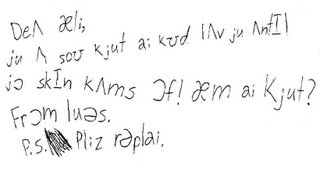 Deʌ æli,
ju ʌ soʊ kjut ai kʊd lʌv ju ʌntIl
jɔ skIn kʌms ɔf! æm ai kjut?
Frɔm luəs.
P.S. Pliz rəplai.